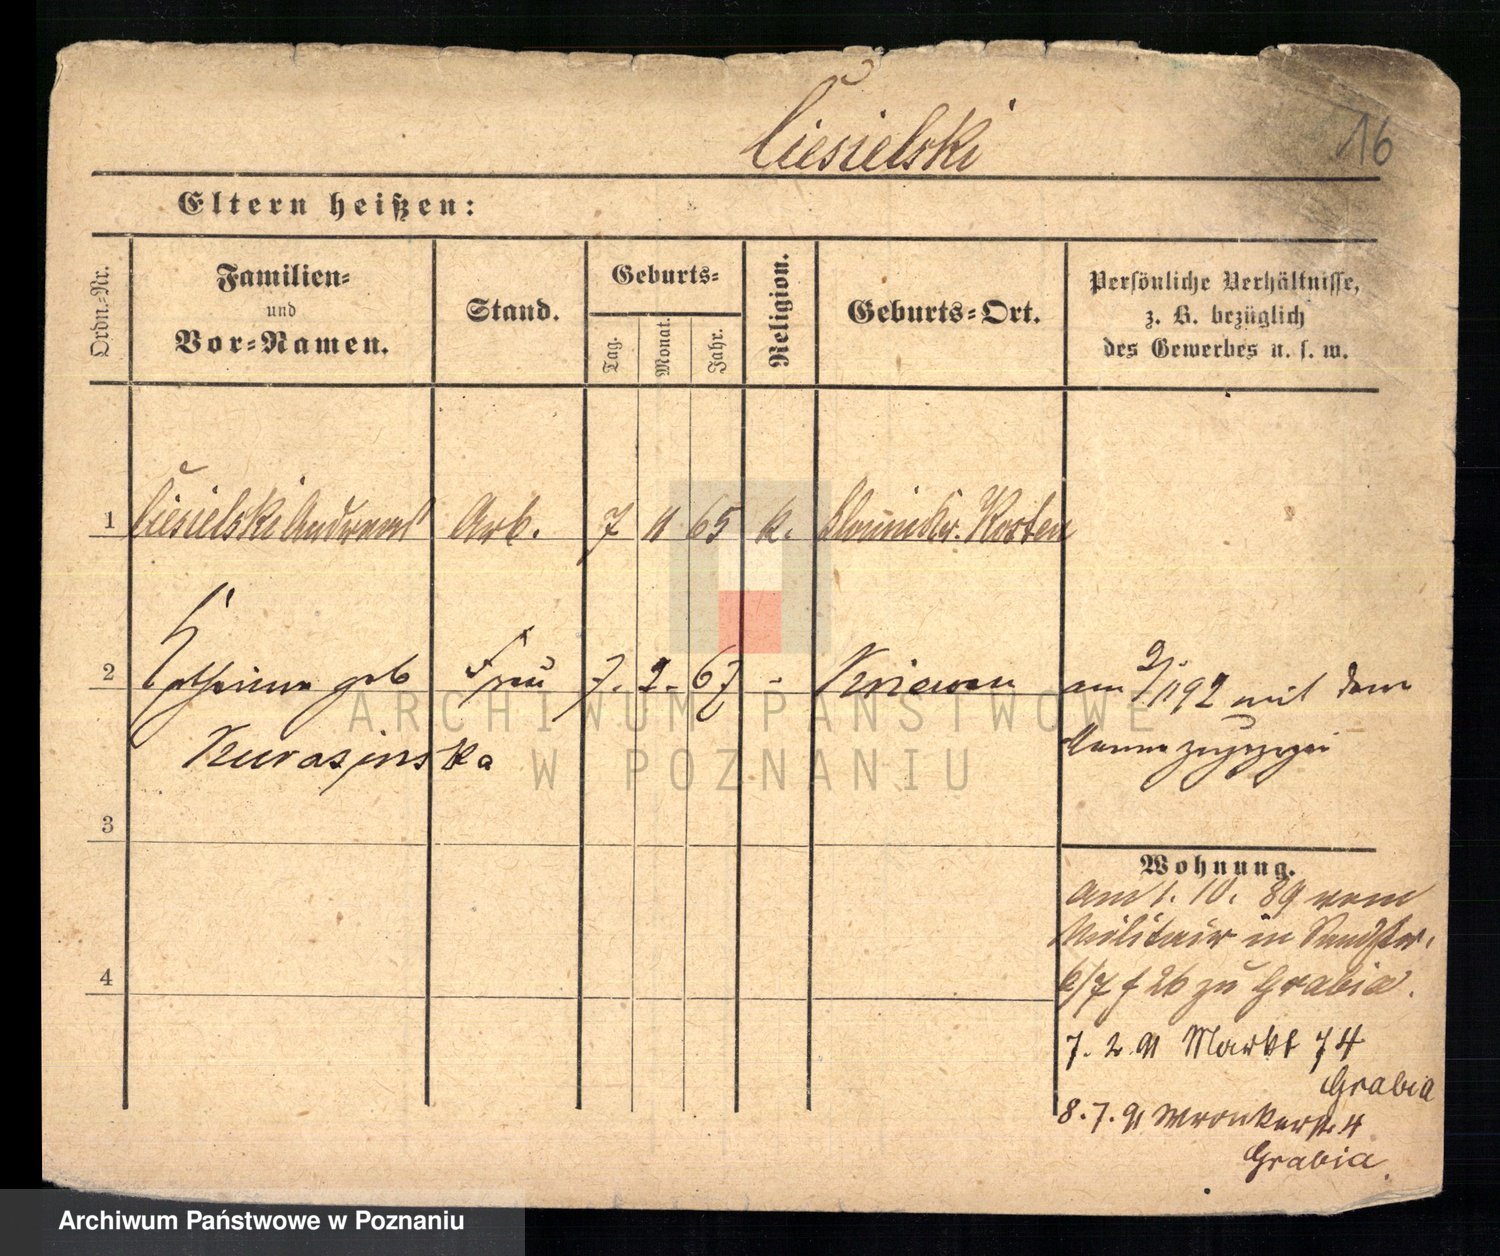 Ciesielski
16
Eltern heißen:
Ordn.-Nr.
Familien-
und
Vor-Namen.
Stand.
Geburts-
Tag.
Monat.
Jahr.
Religion.
Geburts-Ort.
Persönliche Verhältnisse,
z. B. bezüglich
des Gewerbes u. s. w.
1 Ciesielski Andreas Arb. 7 11 65 k. Kr. Kosten
2 geb Frau 7. 2. 67 - Kriewen
Kurasinska
am 2/1 92 mit dem
Manne zugezogen
3
4
Wohnung.
am 1. 10. 89 vom
Militair in Sandstr.
6/7 f 26 zu Grabia.
7. 2. 91 Markt 74
Grabia
8. 7. 91 Wronkerstr 4
Grabia
ARCHIWUM PAŃSTWOWE
W POZNANIU
Archiwum Państwowe w Poznaniu